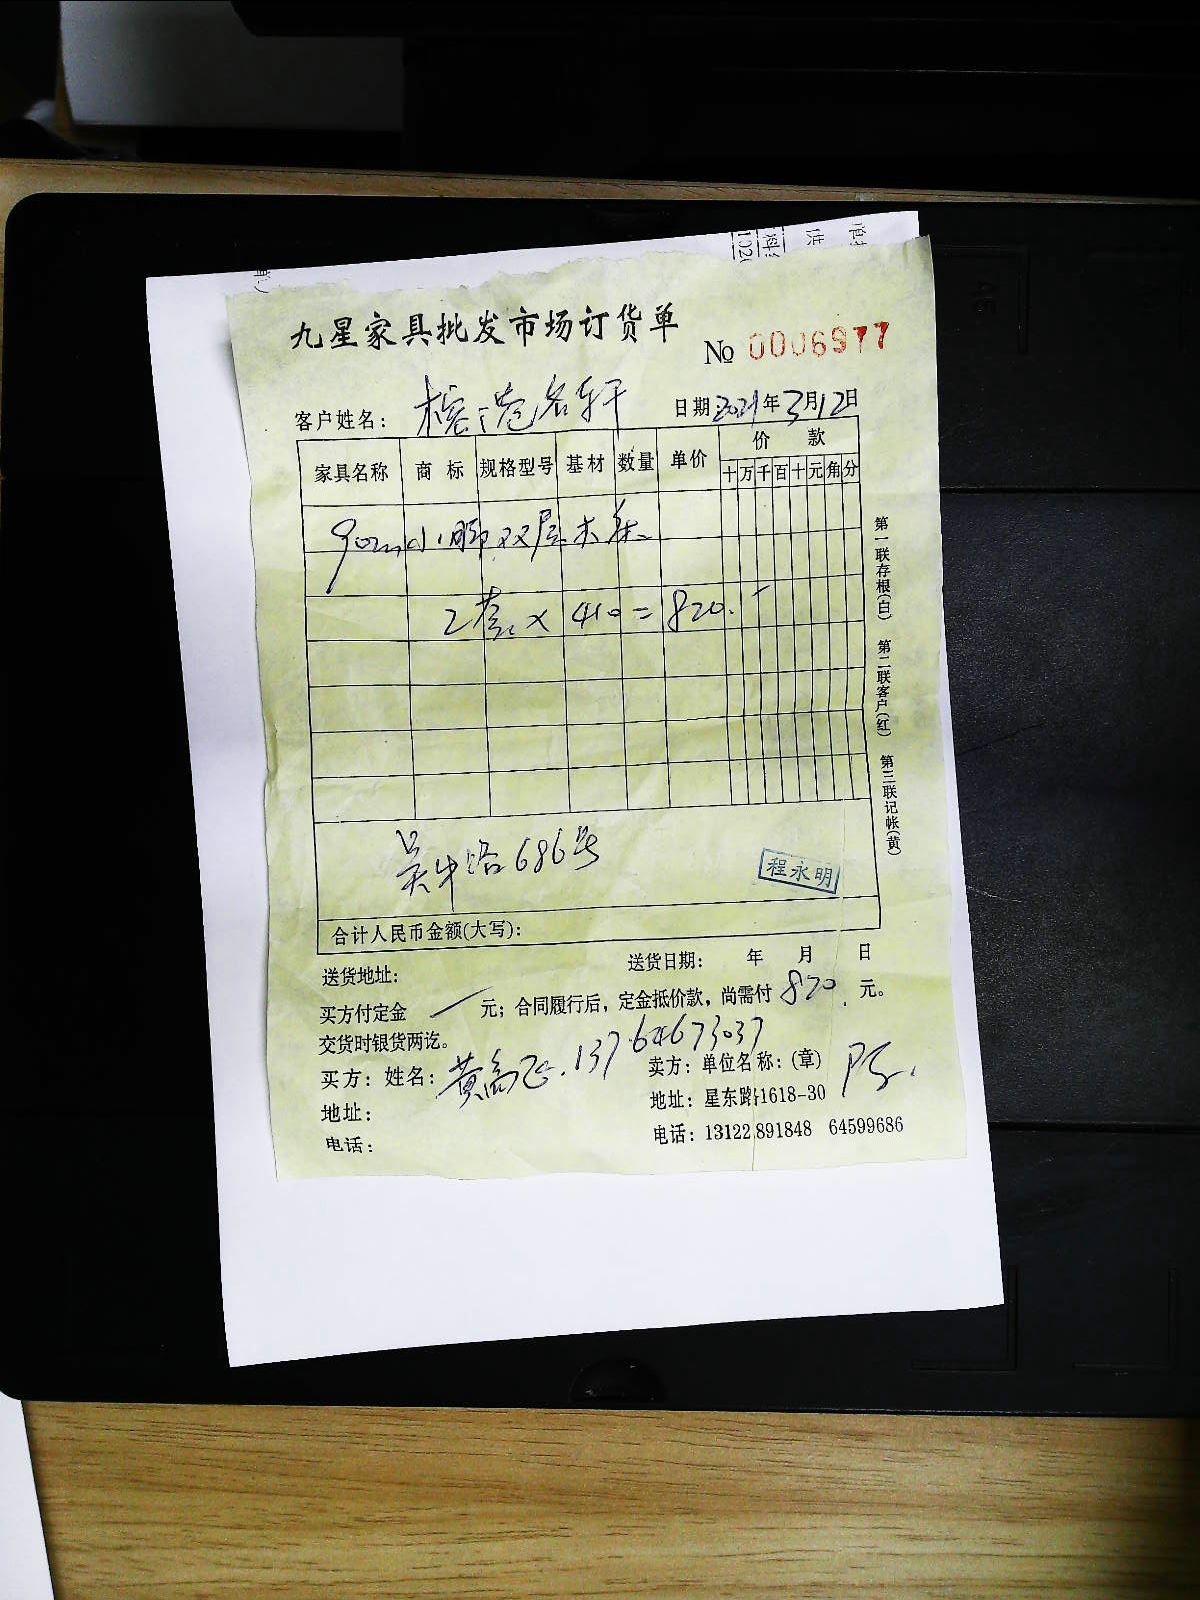 九星家具批发市场订货单
№ 0006977
客户姓名：
日期2021年3月12日
家具名称 商标 规格型号 基材 数量 单价 价款
十万千百十元角分
90cm小脚双层木床
2套×410=820.
686号
程永明
合计人民币金额(大写)：
送货地址： 送货日期： 年 月 日
买方付定金 元；合同履行后，定金抵价款，尚需付820.元。
交货时银货两讫。
买方：姓名：黄高飞.13764673037 卖方：单位名称：(章)
地址： 地址：星东路1618-30
电话： 电话：13122891848 64599686
第一联存根(白) 第二联客户(红) 第三联记帐(黄)